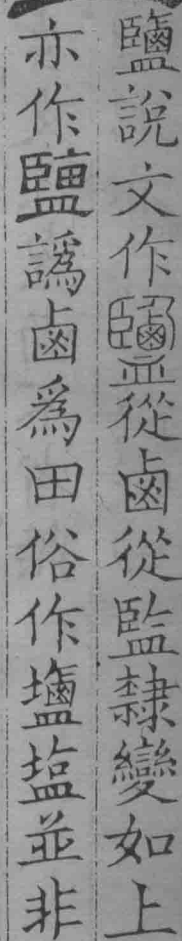 鹽說文作鹽從鹵從監隸變如上
亦作𥂁譌鹵爲田俗作壏塩並非